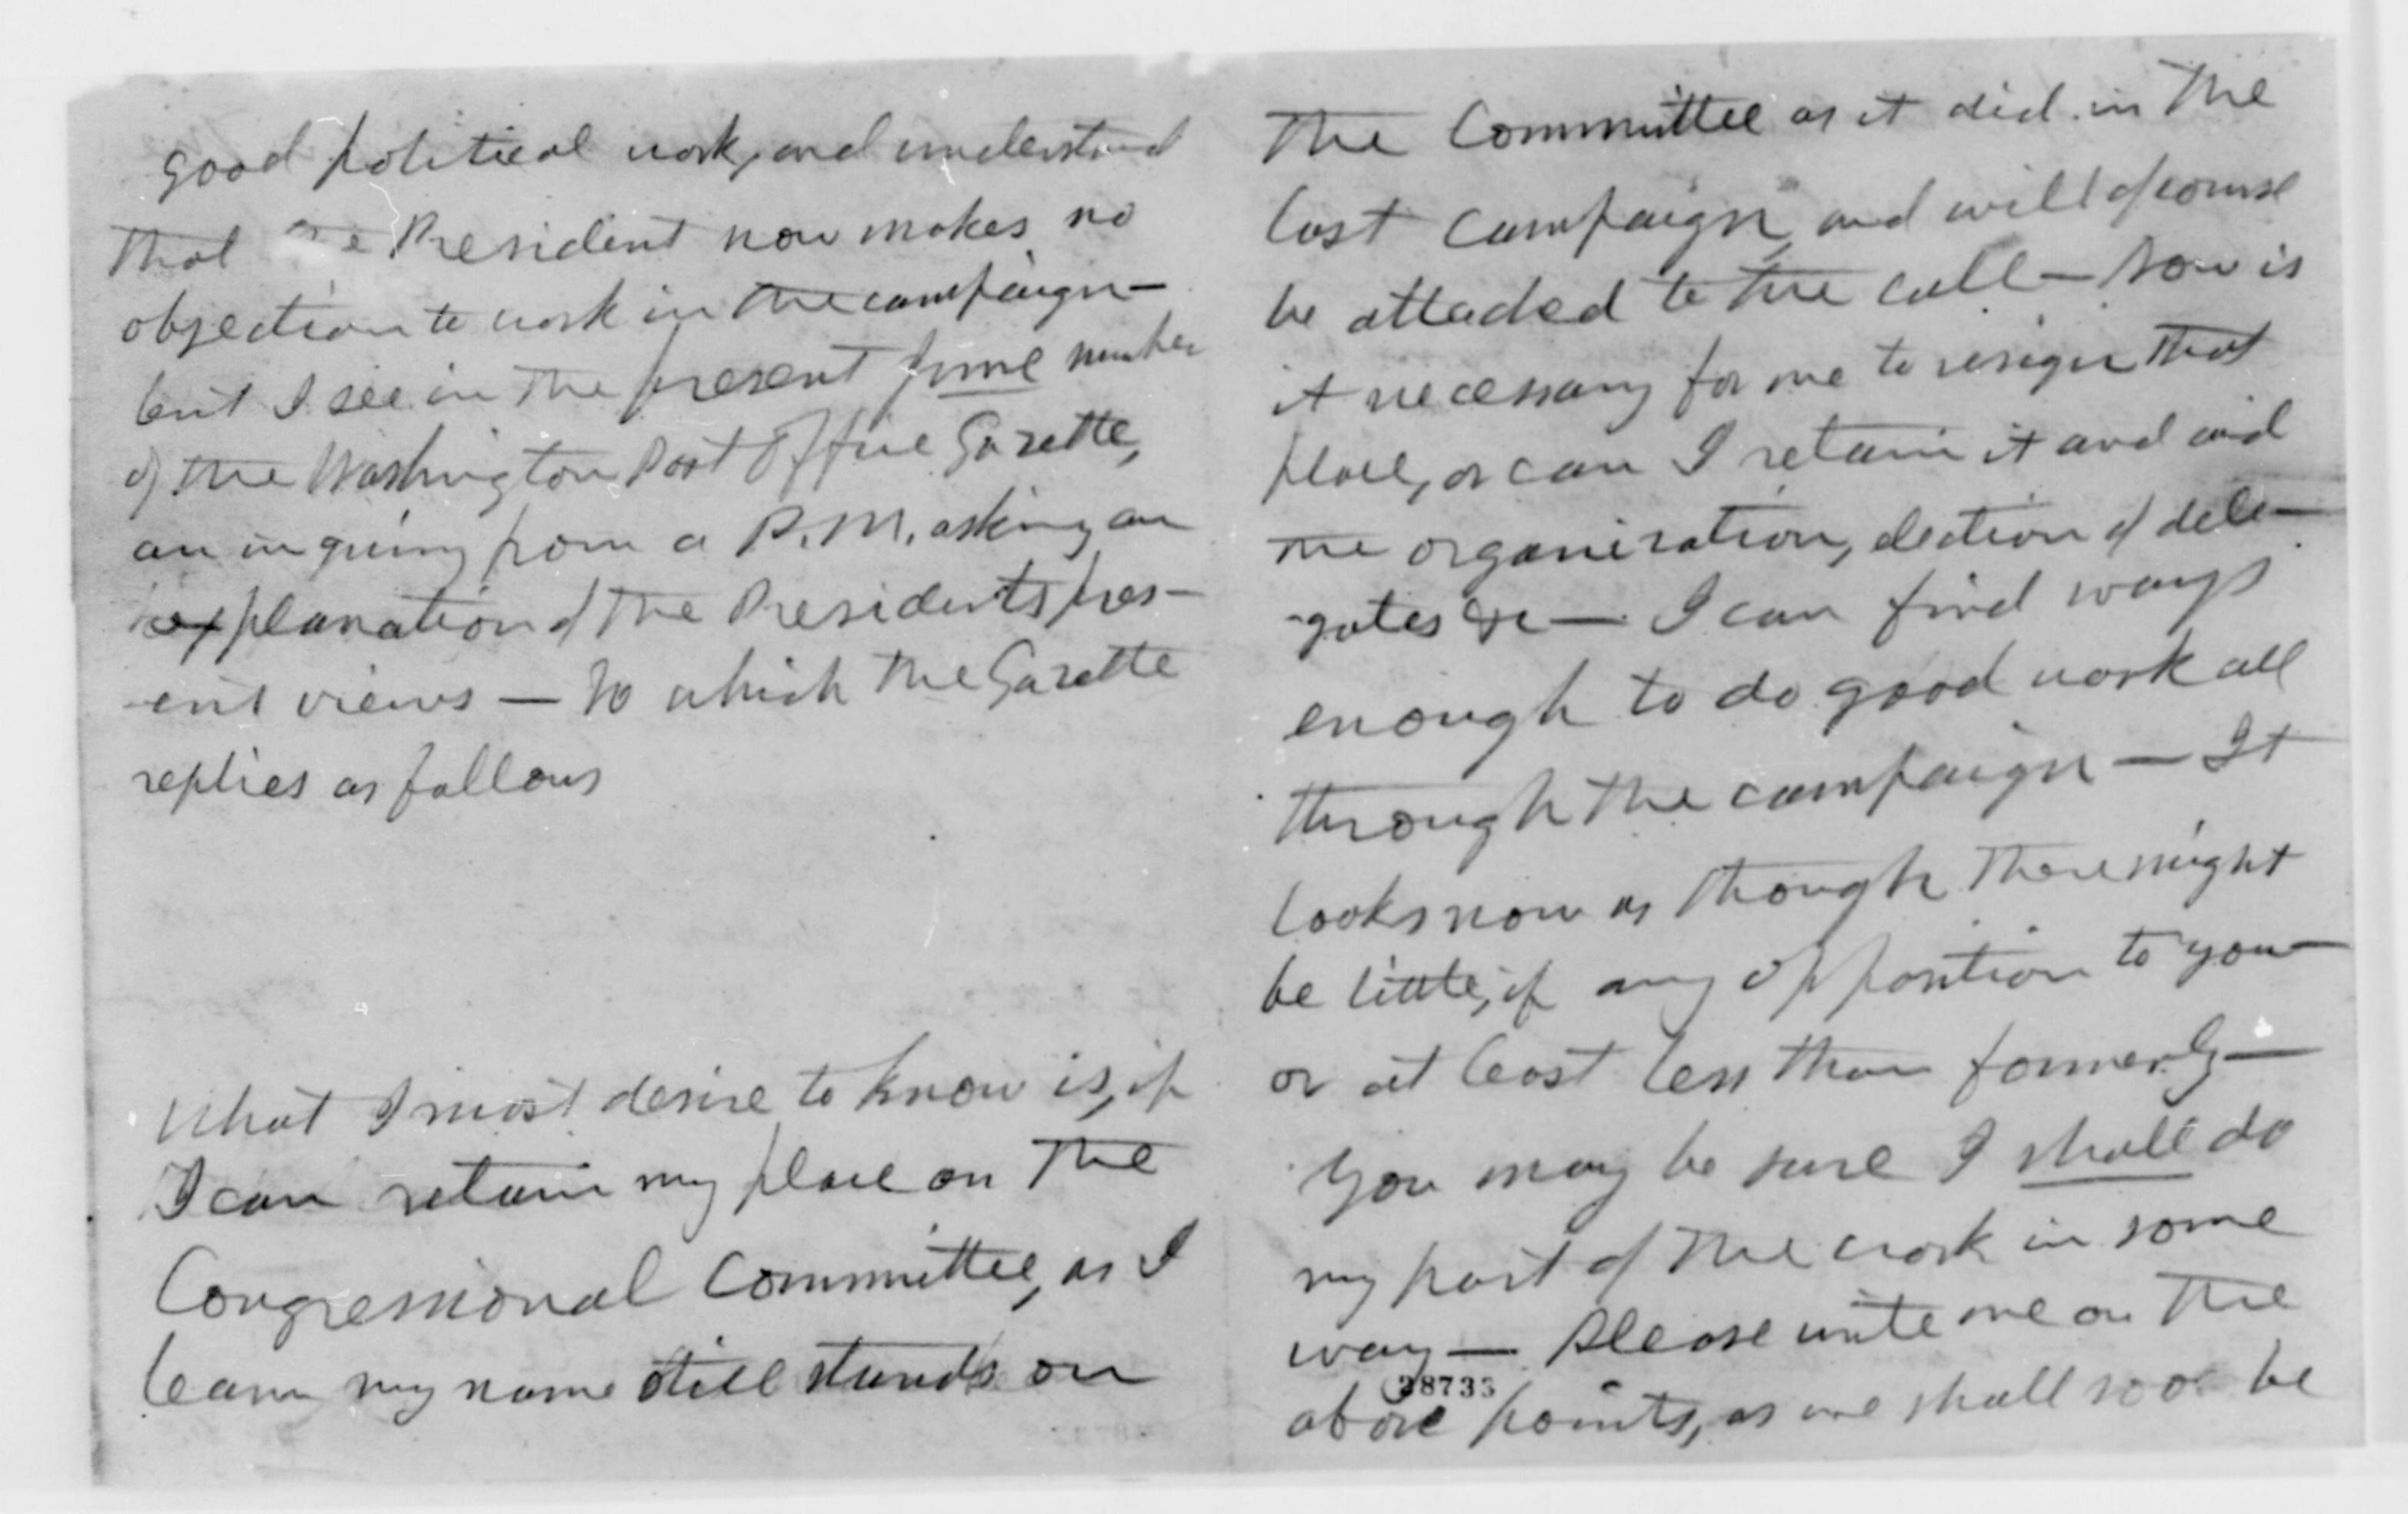 good political work, and understand
that the President now makes no
objection to work in the campaign—
but I see in the present June number
of the Washington Post Office Gazette,
an inquiry from a P.M. asking an
explanation of the Presidents pres-
-ent views — to which the Gazette
replies as follows
What I most desire to know is, if
I can retain my place on the
Congressional Committee, as I
learn my name still stands on
the Committee as it did in the
last campaign, and will of course
be attached to the call — Now is
it necessary for me to resign that
place, or can I retain it and aid
the organization, election of dele-
-gates &c — I can find ways
enough to do good work all
through the campaign — It
looks now as though there might
be little, if any opposition to you—
or at least less than formerly—
You may be sure I shall do
my part of the work in some
way — Please write me on the
38733
above points, as we shall soon be